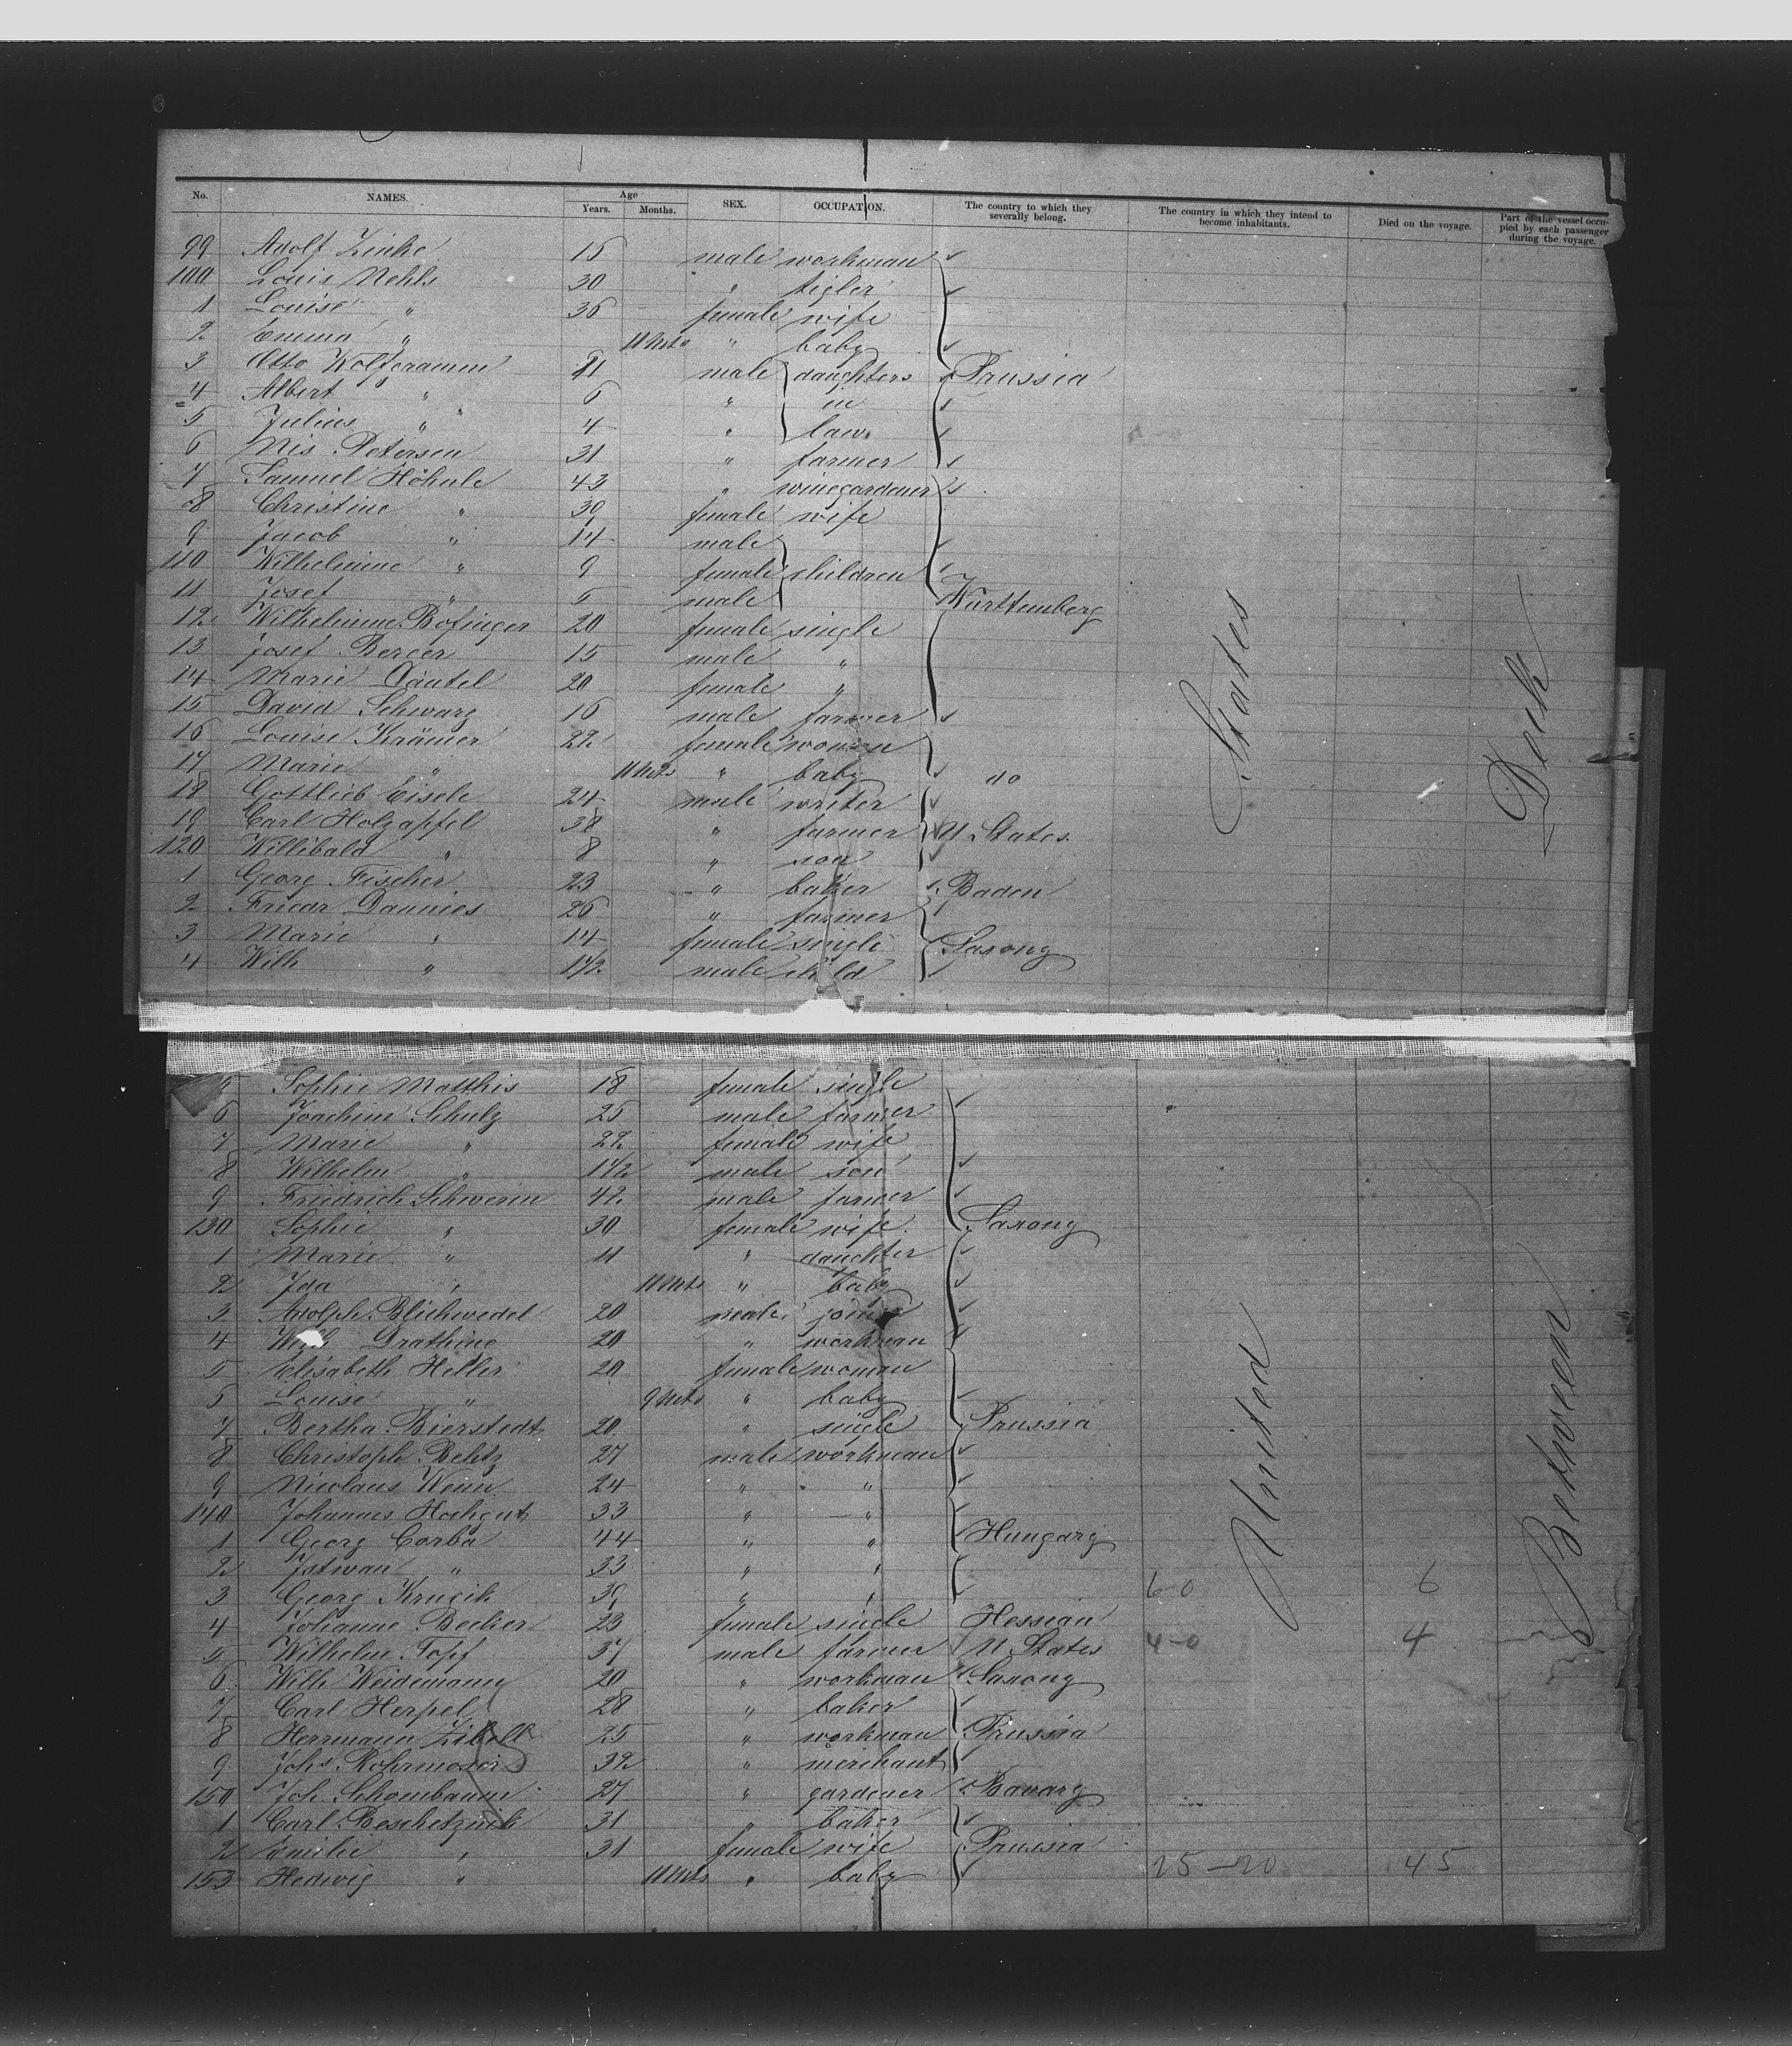 No. NAMES. Age Years. Months. SEX. OCCUPATION. The country to which they severally belong. The country in which they intend to become inhabitants. Died on the voyage. Part of the vessel occupied by each passenger during the voyage.
99 Adolf Zinke 15 male workman
100 Louis Nehls 30 " tigler
1 Louise " 36 female wife
2 Emma " 11 Mts " baby
3 Otto Wolfgramm 11 male daughters Prussia
4 Albert " 6 " in
5 Julius " 4 " law
6 Nis Petersen 31 " farmer
7 Samuel Höhnle 43 " winegardener
8 Christine " 39 female wife
9 Jacob " 14 male
110 Wilhelmine " 9 female children
11 Josef " 5 male Württemberg
12 Wilhelmine Bofinger 20 female single
13 Josef Bercer 15 male "
14 Marie Däutel 20 female "
15 David Schwarz 16 male farmer
16 Louise Krämer 22 female woman
17 Marie " 11 Mts " baby do
18 Gottlieb Eisele 24 male writer
19 Carl Holzapfel 38 " farmer U States
120 Willibald " 8 " son
1 Georg Fischer 23 " baker Baden
2 Friedr Dannies 26 " farmer
3 Marie " 14 female single Saxony
4 Wilh " 1 1/2 male child
States
Deck
5 Sophie Matthis 18 female single
6 Joachim Schulz 25 male farmer
7 Marie " 22 female wife
8 Wilhelm " 1 1/2 male son
9 Friedrich Schwerin 42 male farmer
130 Sophie " 30 female wife Saxony
1 Marie " 11 " daughter
2 Ida " 11 Mts " baby
3 Adolph Blickwedel 20 male joiner
4 Wilh Drathine 20 " workman
5 Elisabeth Heller 20 female woman
5 Louise " 9 Mts " baby
7 Bertha Bierstedt 20 " single Prussia
8 Christoph Behtz 27 male workman
9 Nicolaus Wenn 24 " "
140 Johannes Hochgut 33 " "
1 Georg Corba 44 " " Hungary
2 Istwan " 33 " "
3 Georg Krucik 39 " " 6-0 6
4 Johanne Becker 23 female single Hessian
5 Wilhelm Topf 37 male farmer U States 4-0 4
6 Wilh Weidemann 20 " workman Saxony
7 Carl Herpel 28 " baker
8 Herrmann Zibell 25 " workman Prussia
9 Johs Rohrmoser 32 " merchant
150 Joh Schombaum 27 " gardener Bavary
1 Carl Beschetznik 31 " baker
2 Emilie " 31 female wife Prussia
153 Hedwig " 11 Mts " baby 25-20 45
United
Between